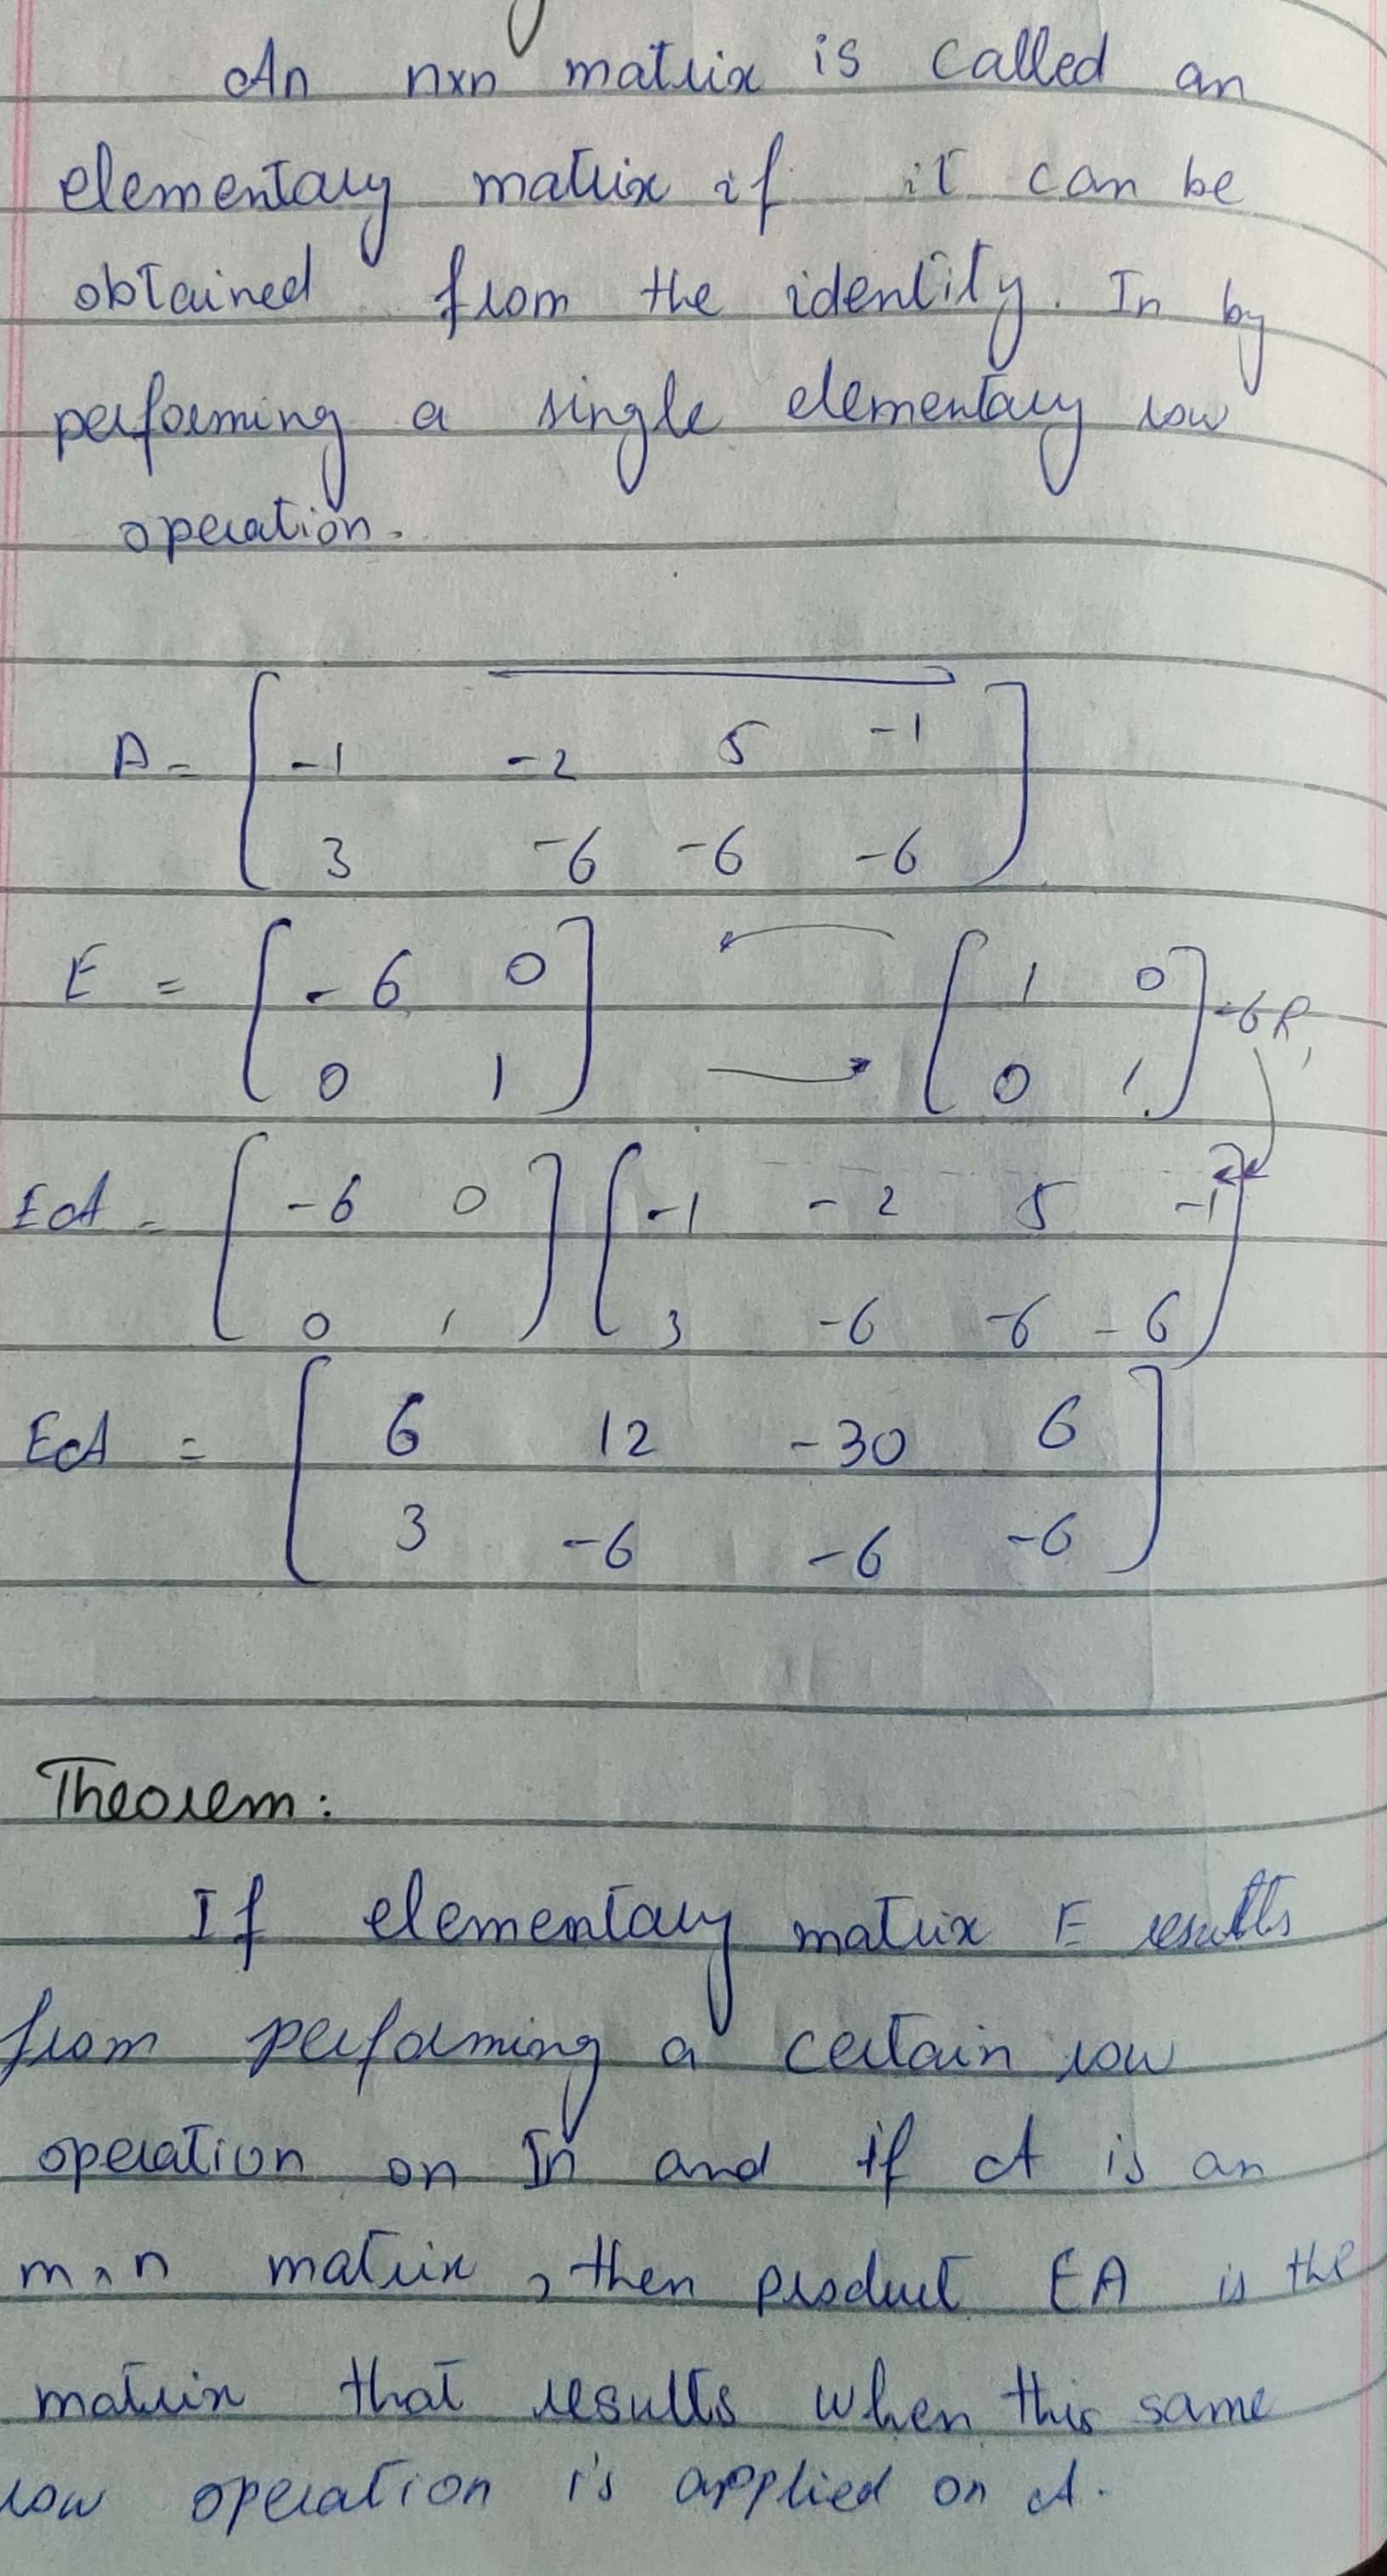 An nxn matrix is called an
elementary matrix if it can be
obtained from the identity. In by
performing a single elementary row
operation.
A = [ -1 -2 5 -1
3 -6 -6 -6 ]
E = [ -6 0 [ 1 0 -6R₁
0 1 ] 0 1 ]
EA = [ -6 0 [ -1 -2 5 -1
0 1 ] 3 -6 -6 -6 ]
EA = [ 6 12 -30 6
3 -6 -6 -6 ]
Theorem:
If elementary matrix E results
from performing a certain row
operation on In and if A is an
m×n matrix, then product EA is the
matrix that results when this same
row operation is applied on A.